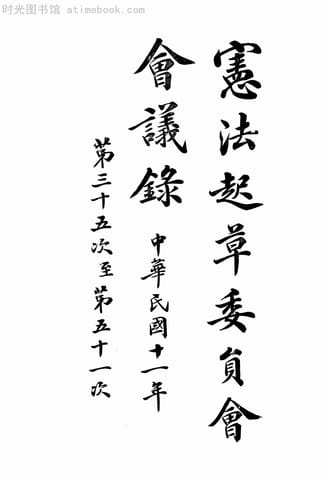 时光图书馆 atimebook.com
憲法起草委員會
會議錄 中華民國十一年
第三十五次至第五十一次